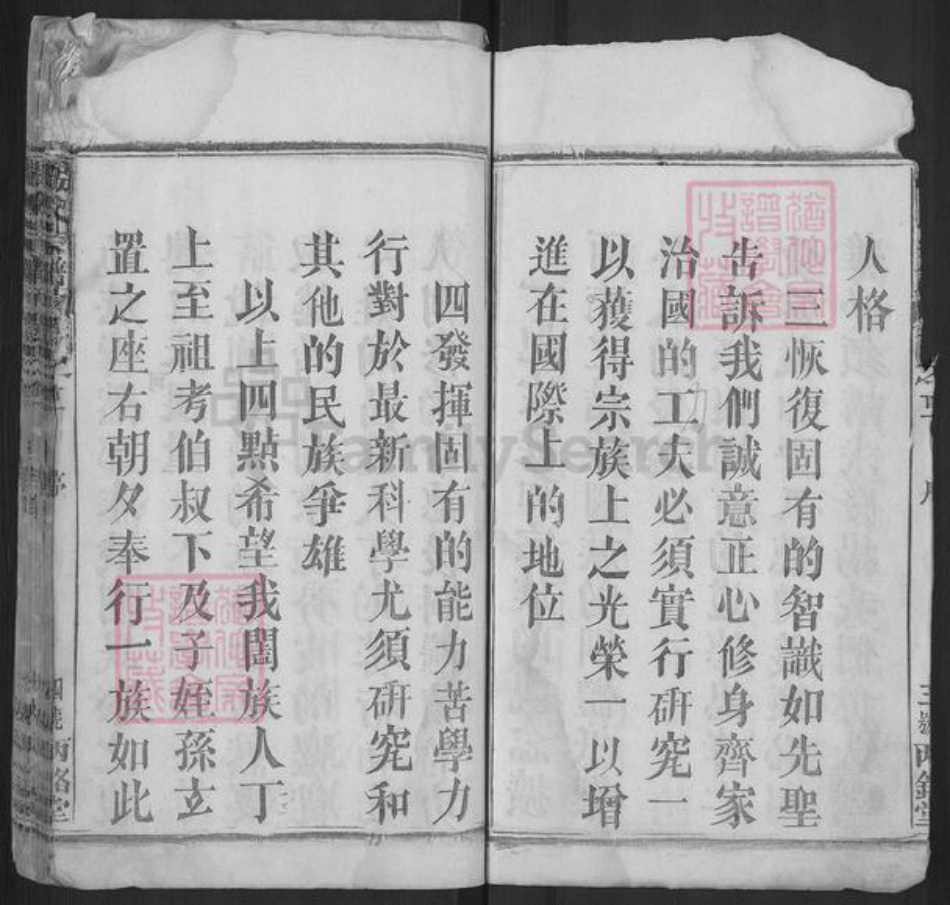 人格
三恢復固有的智識如先聖
告訴我們誠意正心修身齊家
治國的工夫必須實行硏究一
以獲得宗族上之光榮一以增
進在國際上的地位
四發揮固有的能力苦學力
行對於最新科學尤須硏究和
其他的民族爭雄
以上四點希望我闔族人丁
上至祖考伯叔下及子姪孫玄
置之座右朝夕奉行一族如此
FamilySearch